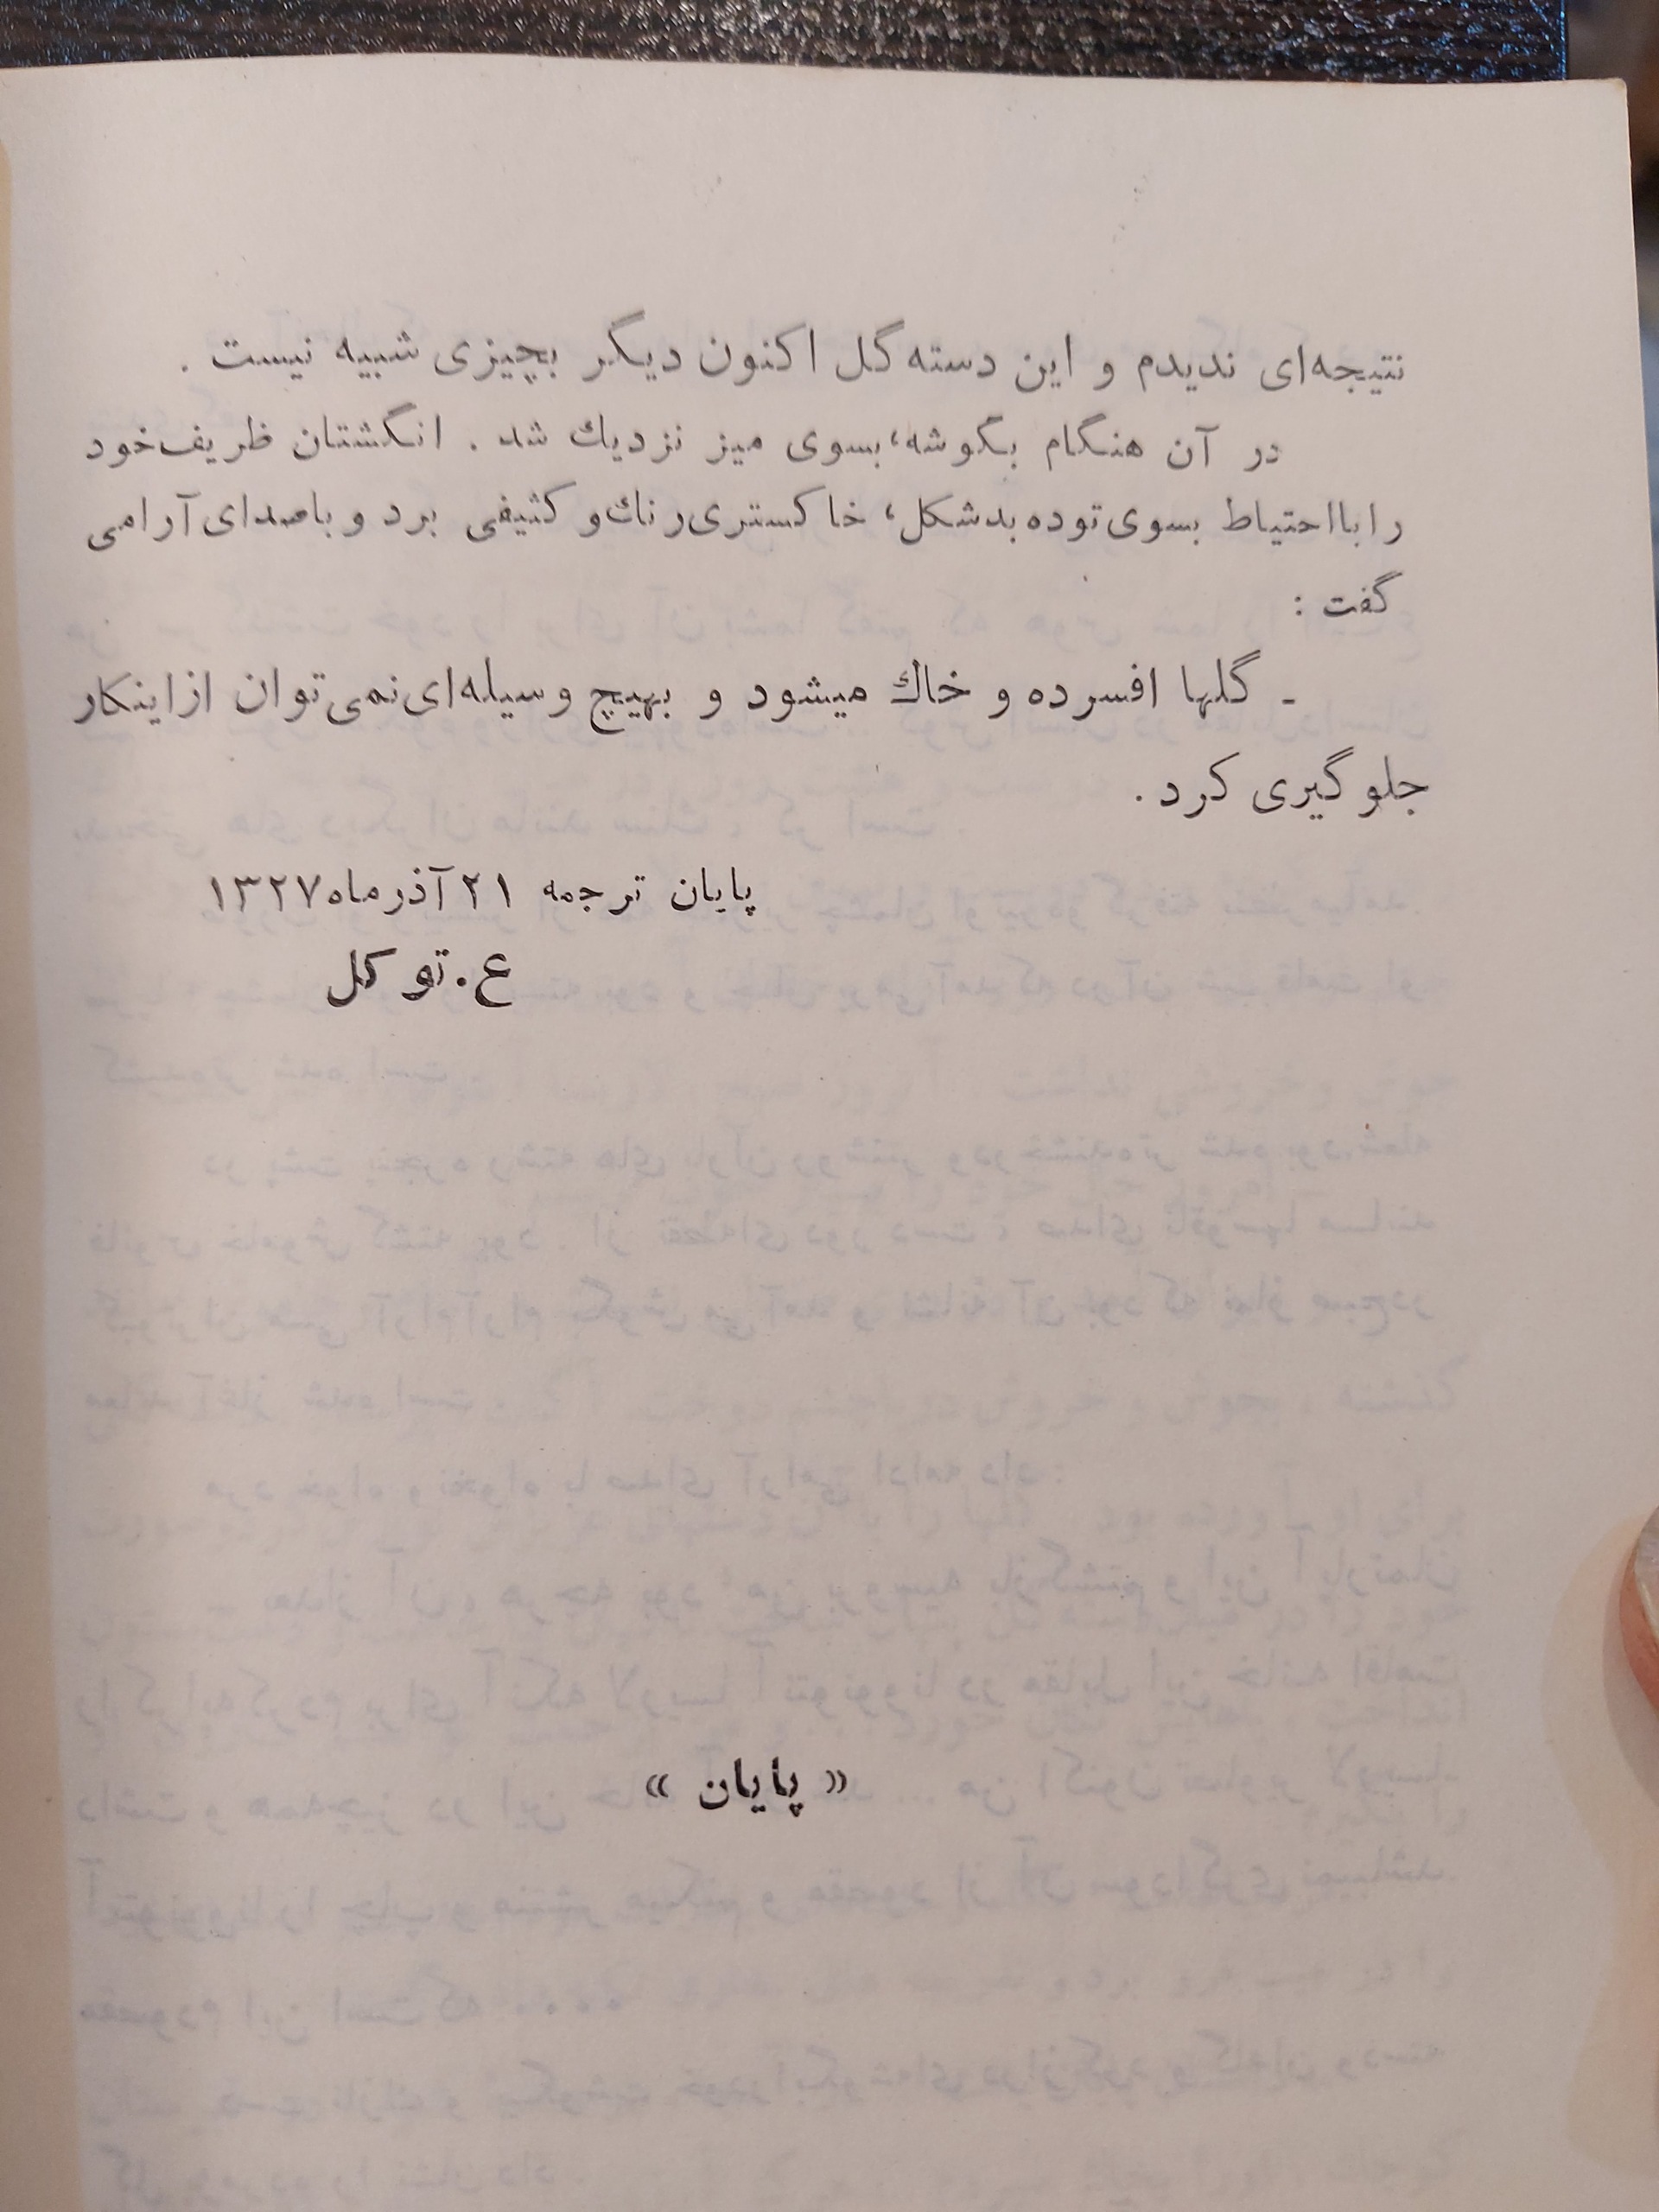 نتیجه‌ای ندیدم و این دسته گل اکنون دیگر بچیزی شبیه نیست .
در آن هنگام بگوشه، بسوی میز نزدیك شد . انگشتان ظریف خود
را با احتیاط بسوی توده بدشکل، خاکستری رنك و کثیفی برد و با صدای آرامی
گفت :
ـ گلها افسرده و خاك میشود و بهیچ وسیله‌ای نمی‌توان از اینکار
جلوگیری کرد .
پایان ترجمه ۲۱ آذر ماه ۱۳۲۷
ع . توکل
« پایان »